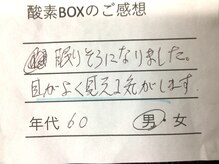 酸素BOXのご感想
眠りそうになりました。
目がよく見える気がします。
年代 60 男・女